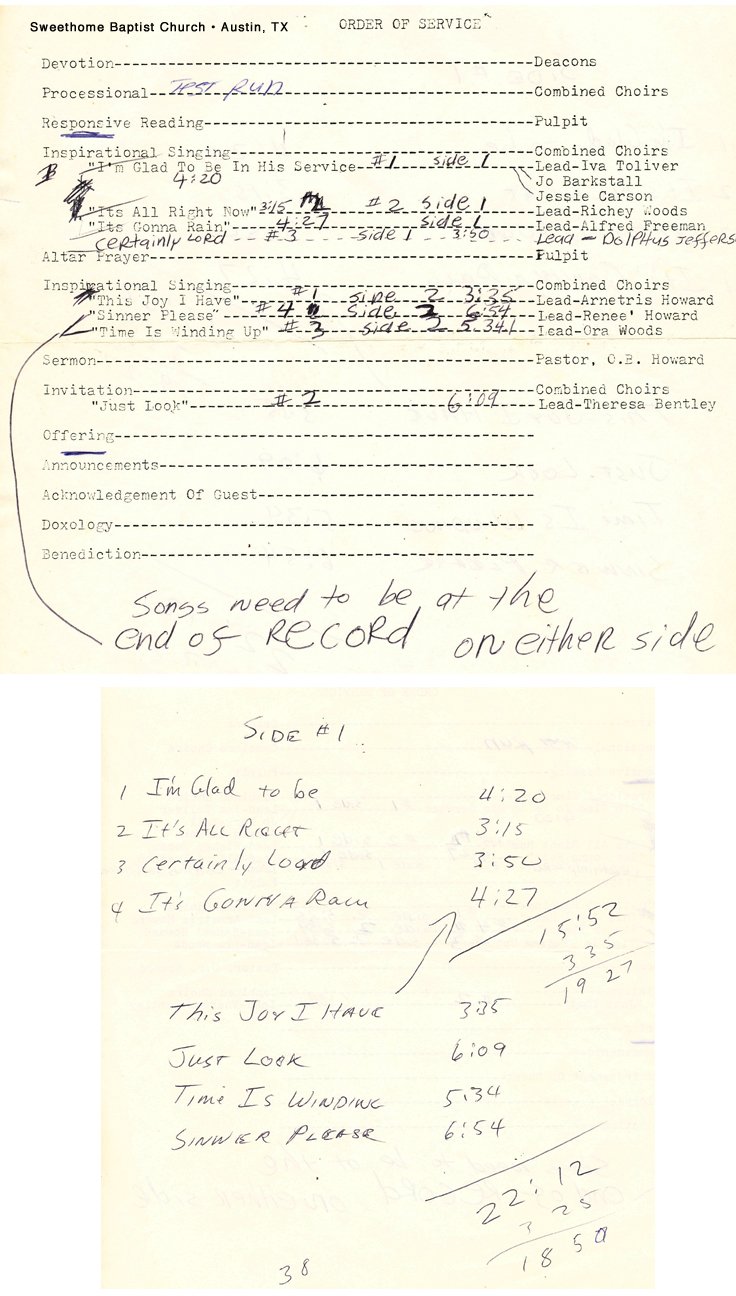 Sweethome Baptist Church • Austin, TX
ORDER OF SERVICE
Devotion------------------------------------------------Deacons
Processional-- Test Run --------------------------------Combined Choirs
Responsive Reading--------------------------------------Pulpit
Inspirational Singing-----------------------------------Combined Choirs
B "I'm Glad To Be In His Service #1 side 1 Lead-Iva Toliver
4:20 Jo Barkstall
Jessie Carson
"Its All Right Now" 3:15 #2 side 1 Lead-Richey Woods
"Its Gonna Rain" 4:27 side 1 Lead-Alfred Freeman
Certainly Lord #3 side 1 3:50 Lead - Dolphus Jeffers
Altar Prayer--------------------------------------------Pulpit
Inspirational Singing-----------------------------------Combined Choirs
"This Joy I Have" #1 side 2 3:35 Lead-Arnetris Howard
"Sinner Please" #4 side 2 6:54 Lead-Renee' Howard
"Time Is Winding Up" #3 side 2 5:34 Lead-Ora Woods
Sermon--------------------------------------------------Pastor, O.B. Howard
Invitation----------------------------------------------Combined Choirs
"Just Look" #2 6:09 Lead-Theresa Bentley
Offering------------------------------------------------
Announcements-------------------------------------------
Acknowledgement Of Guest--------------------------------
Doxology------------------------------------------------
Benediction---------------------------------------------
Songs need to be at the
end of RECORD on either side
SIDE #1
1 I'm Glad to be 4:20
2 It's ALL RIGHT 3:15
3 Certainly Lord 3:50
4 It's GONNA Rain 4:27
15:52
335
19 27
This Joy I HAVE 3:35
JUST LOOK 6:09
Time Is WINDING 5:34
SINNER PLEASE 6:54
22:12
3 25
18 50
38